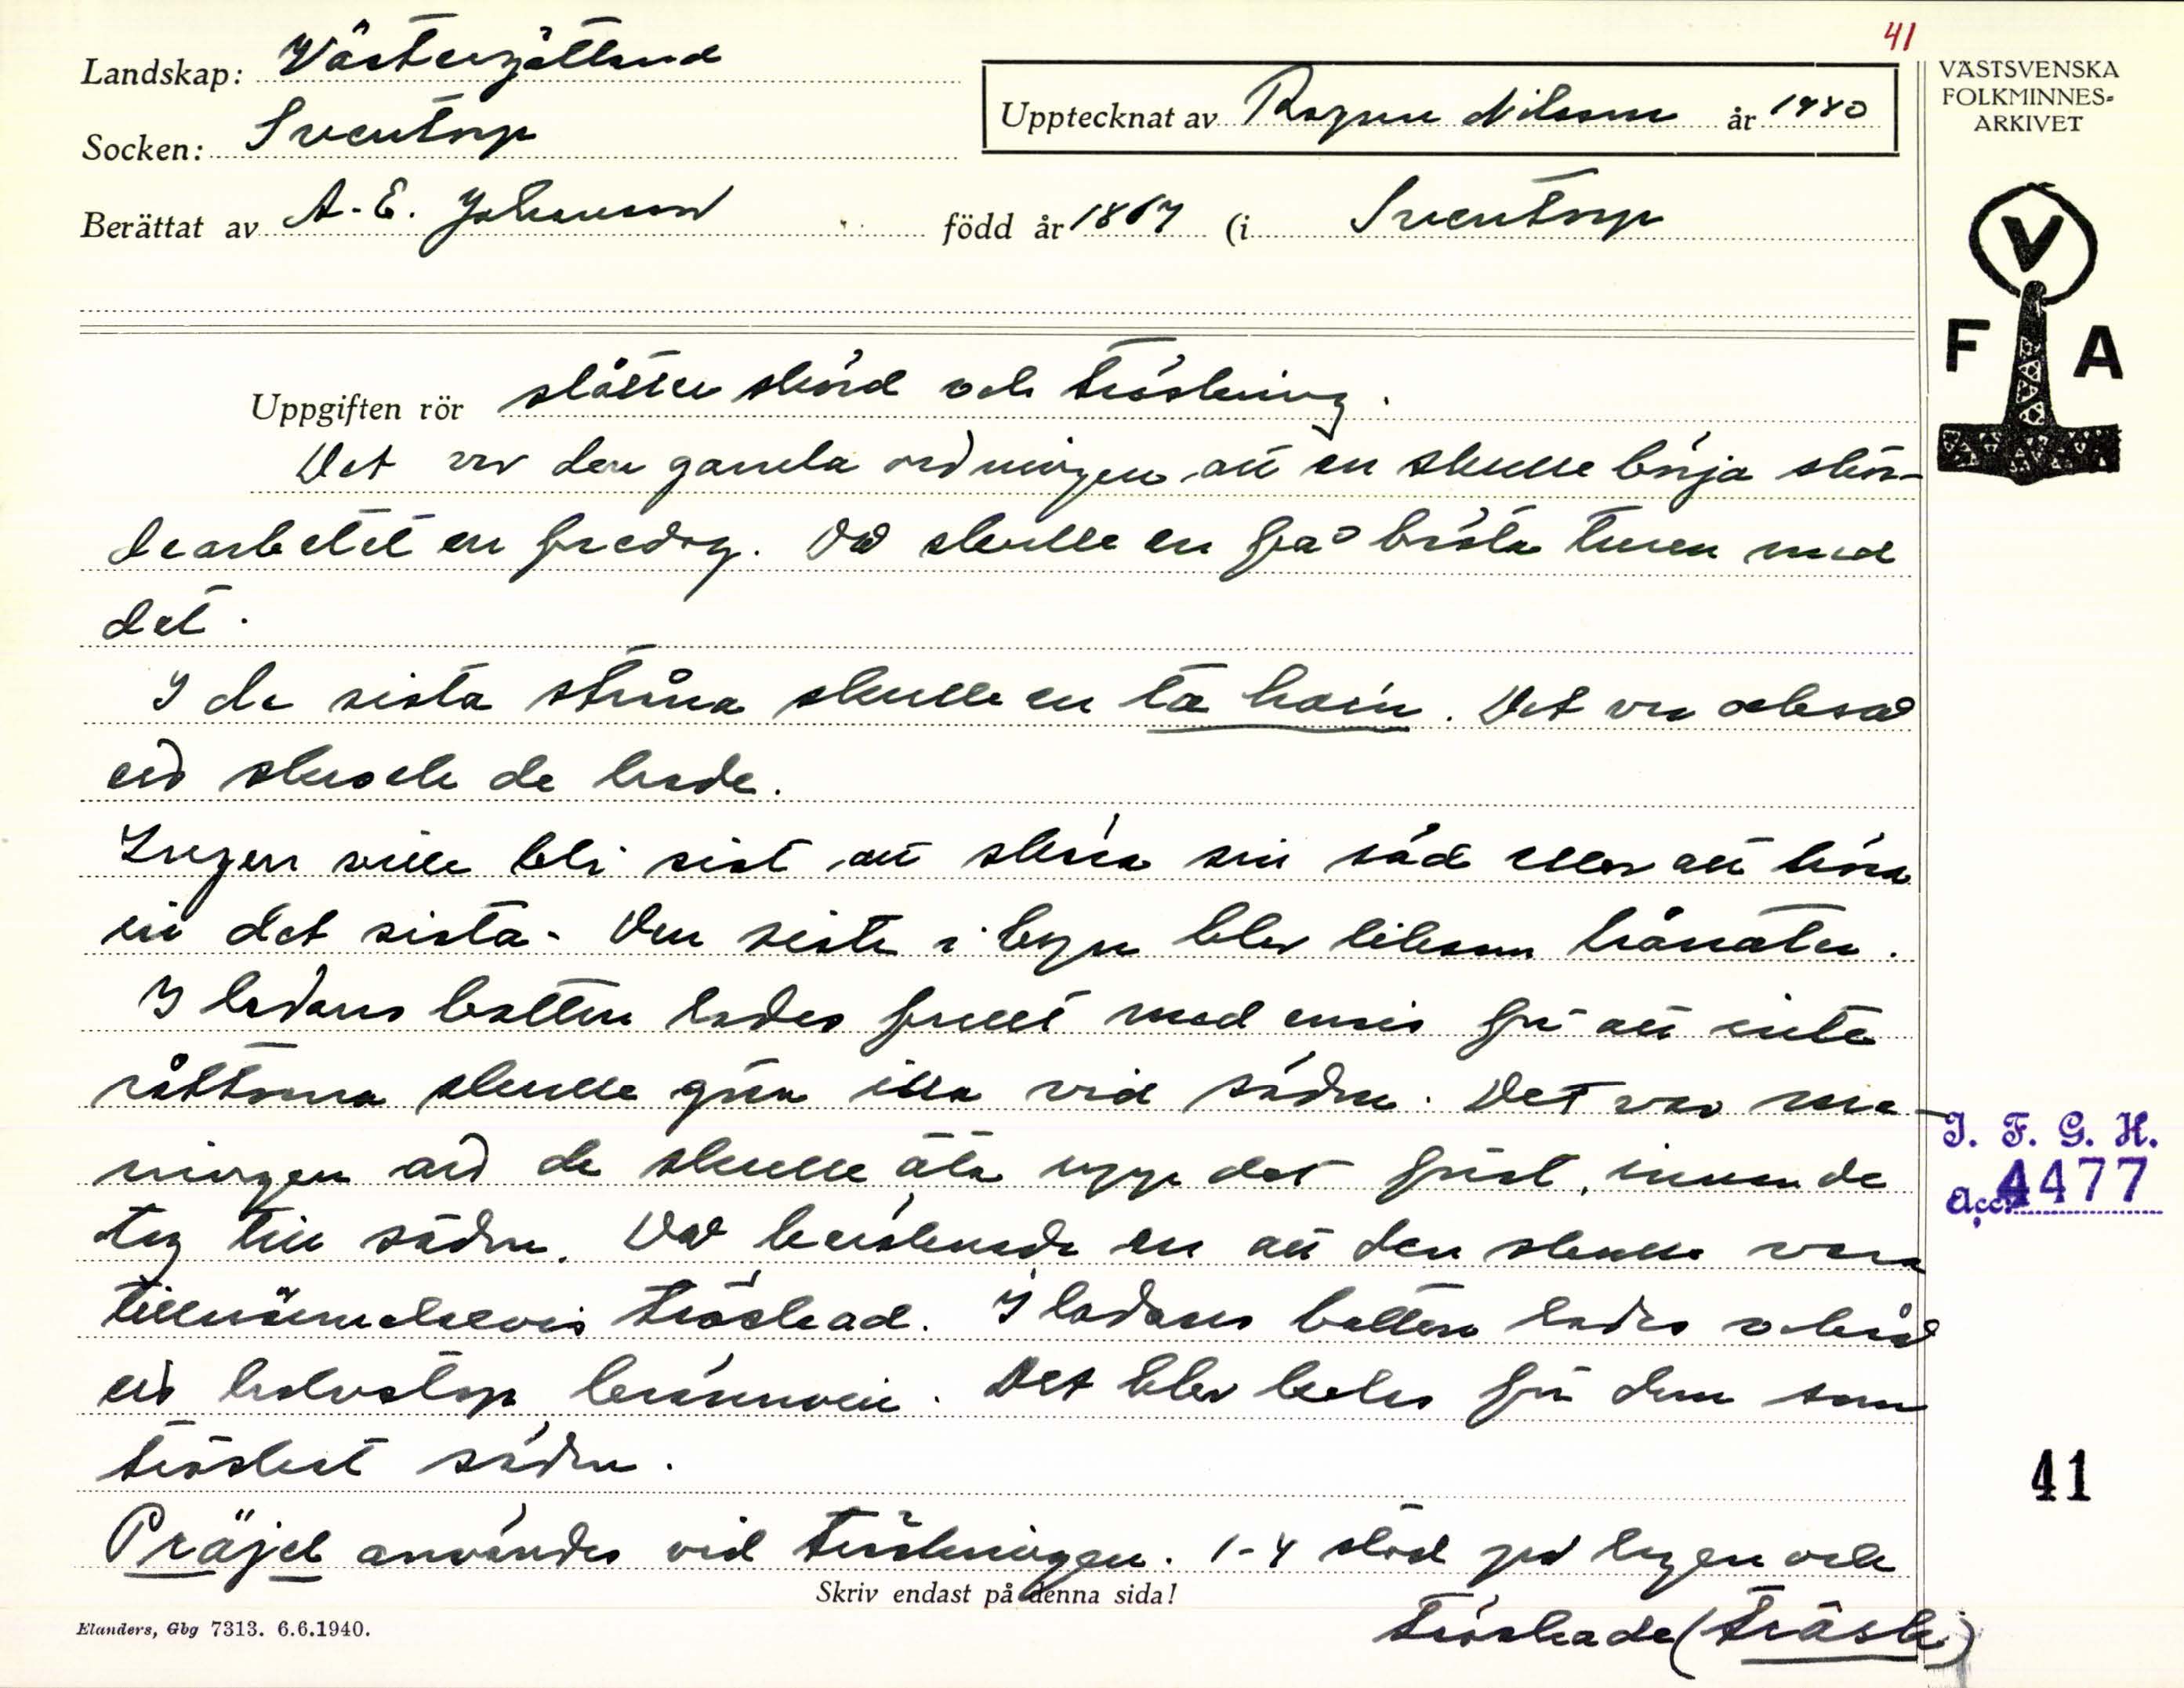 41
Landskap: Västergötland
Socken: Sventorp
Upptecknat av Ragnar Nilsson år 1940
Berättat av A. E. Johansson född år 1867 (i Sventorp
VÄSTSVENSKA
FOLKMINNES-
ARKIVET
V
F A
Uppgiften rör slåtter skörd och tröskning.
Det var den gamla ordningen att en skulle börja skör-
dearbetet en fredag. Då skulle en få bästa turen med
det.
I de sista stråna skulle en ta harn. Det var också
ed de hade.
Ingen ville bli sist att skära sin säd eller att köra
in det sista. Den siste i byn blev liksom hånaten.
I ladans botten lades fullt med enris för att inte
råttorna skulle göra illa vid säden. Det var me-
ningen att de skulle äta upp det först, innan de
tog till säden. Då beräknade en att den skulle vara
tillnärmelsevis tröskad. I ladans botten lades också
ett halvstop brännvin. Det blev kalas för dem som
tröskat säden.
Präjel användes vid tröskningen. 1-4 stod på logen och
tröskade (träsk)
Skriv endast på denna sida!
Elanders, Gbg 7313. 6.6.1940.
I. F. G. H.
Acc. 4477
41